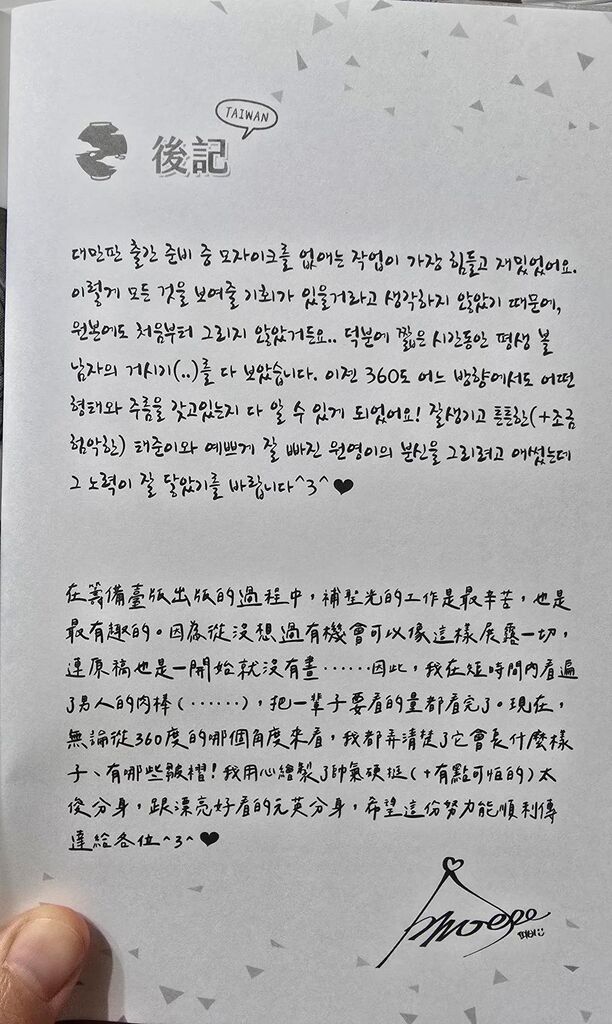 TAIWAN
後記
대만판 출간 준비 중 모자이크를 없애는 작업이 가장 힘들고 재밌었어요.
이렇게 모든 것을 보여줄 기회가 있을거라고 생각하지 않았기 때문에,
원본에도 처음부터 그리지 않았거든요.. 덕분에 짧은 시간동안 평생 볼
남자의 거시기(..)를 다 보았습니다. 이젠 360도 어느 방향에서도 어떤
형태와 주름을 갖고있는지 다 알 수 있게 되었어요! 잘생기고 튼튼한(+조금
험악한) 태준이와 예쁘게 잘 빠진 원영이의 분신을 그리려고 애썼는데
그 노력이 잘 닿았기를 바랍니다^3^♥
在籌備臺版出版的過程中，補聖光的工作是最辛苦，也是
最有趣的。因為從沒想過有機會可以像這樣展露一切，
連原稿也是一開始就沒有畫……因此，我在短時間內看遍
了男人的肉棒（……），把一輩子要看的量都看完了。現在，
無論從360度的哪個角度來看，我都弄清楚了它會長什麼樣
子、有哪些皺褶！我用心繪製了帥氣硬挺（+有點可怕的）太
俊分身，跟漂亮好看的元英分身，希望這份努力能順利傳
達給各位^3^♥